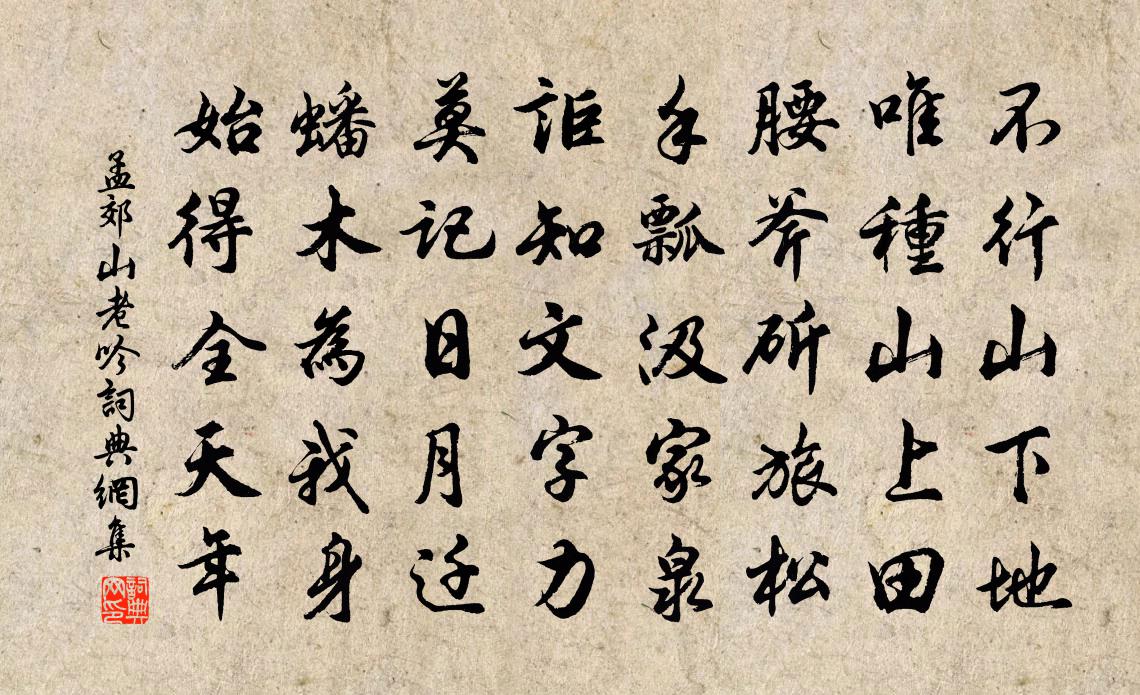 不行山下地
唯種山上田
腰斧斫旅松
手瓢汲家泉
詎知文字力
莫記日月迁
蟠木為我身
始得全天年
孟郊山老吟詞典網集
詞典
网印